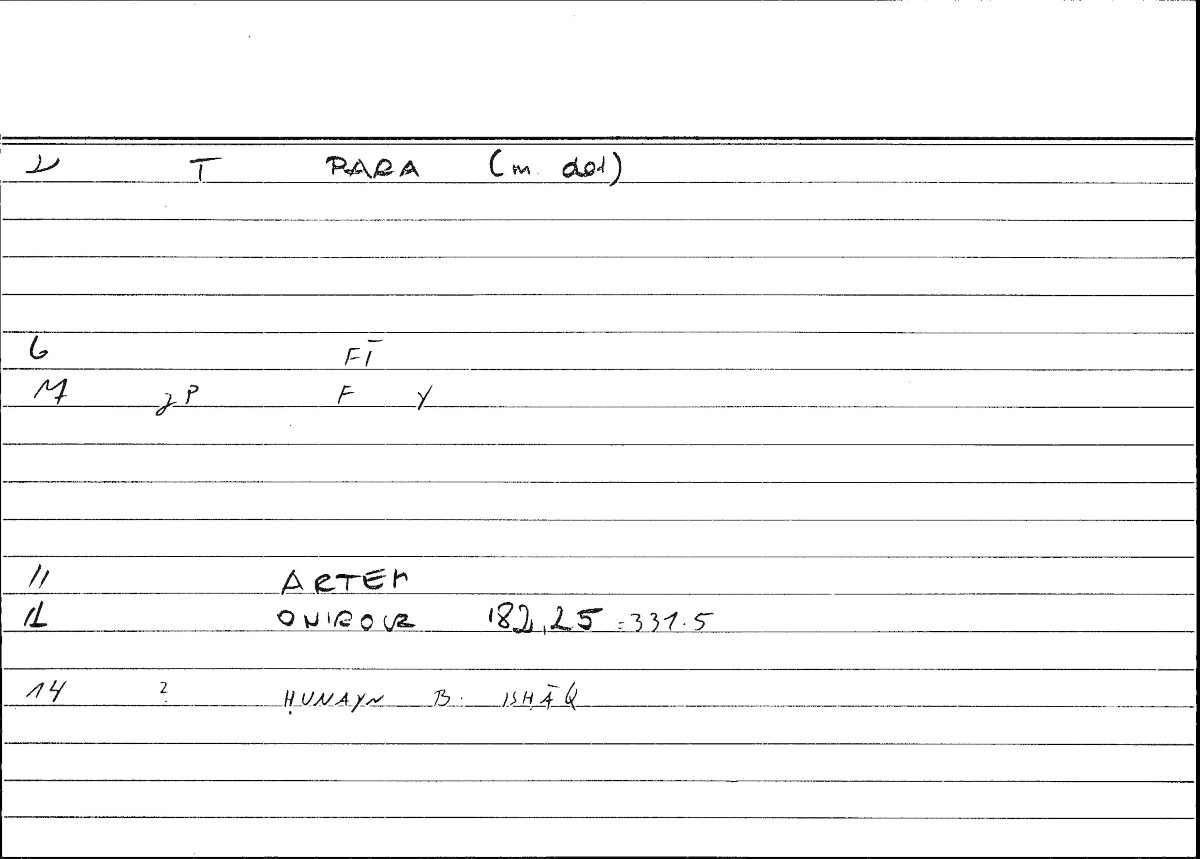 ν T PARA (m. def)
6 FĪ
M gP F Y
11 ARTEM
12 ONIROCR 182,25 = 331.5
14 ? ḤUNAYN B. ISḤĀQ